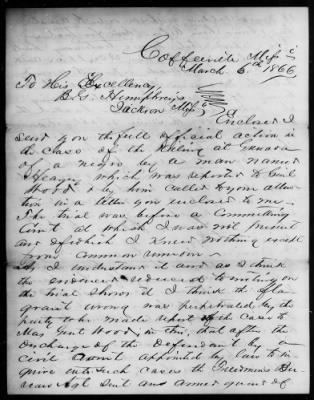 Coffeeville Missi
March 6th 1866
To His Excellency
B. G. Humphreys
Jackson Missi
Enclosed I
send you the full official action in
the case of the killing at Grenada
of a negro by a man named
which was reported to Genl
Wood & by him called to your atten
tion in a letter you enclosed to me.
The trial was before a Committing
Court at which I was not present
and of which I knew nothing except
from common rumor.
As I understand it and as I think
the evidence reduced to writing on
the trial shows it I think the fla
grant wrong was perpetrated by the
party who made report of the case to
Maj Genl Wood, in this, that after the
discharge of the Defendant by a
civil Court appointed by law to in
quire into such cases the Freedmens Bu
reau Agt sent and armed guard of